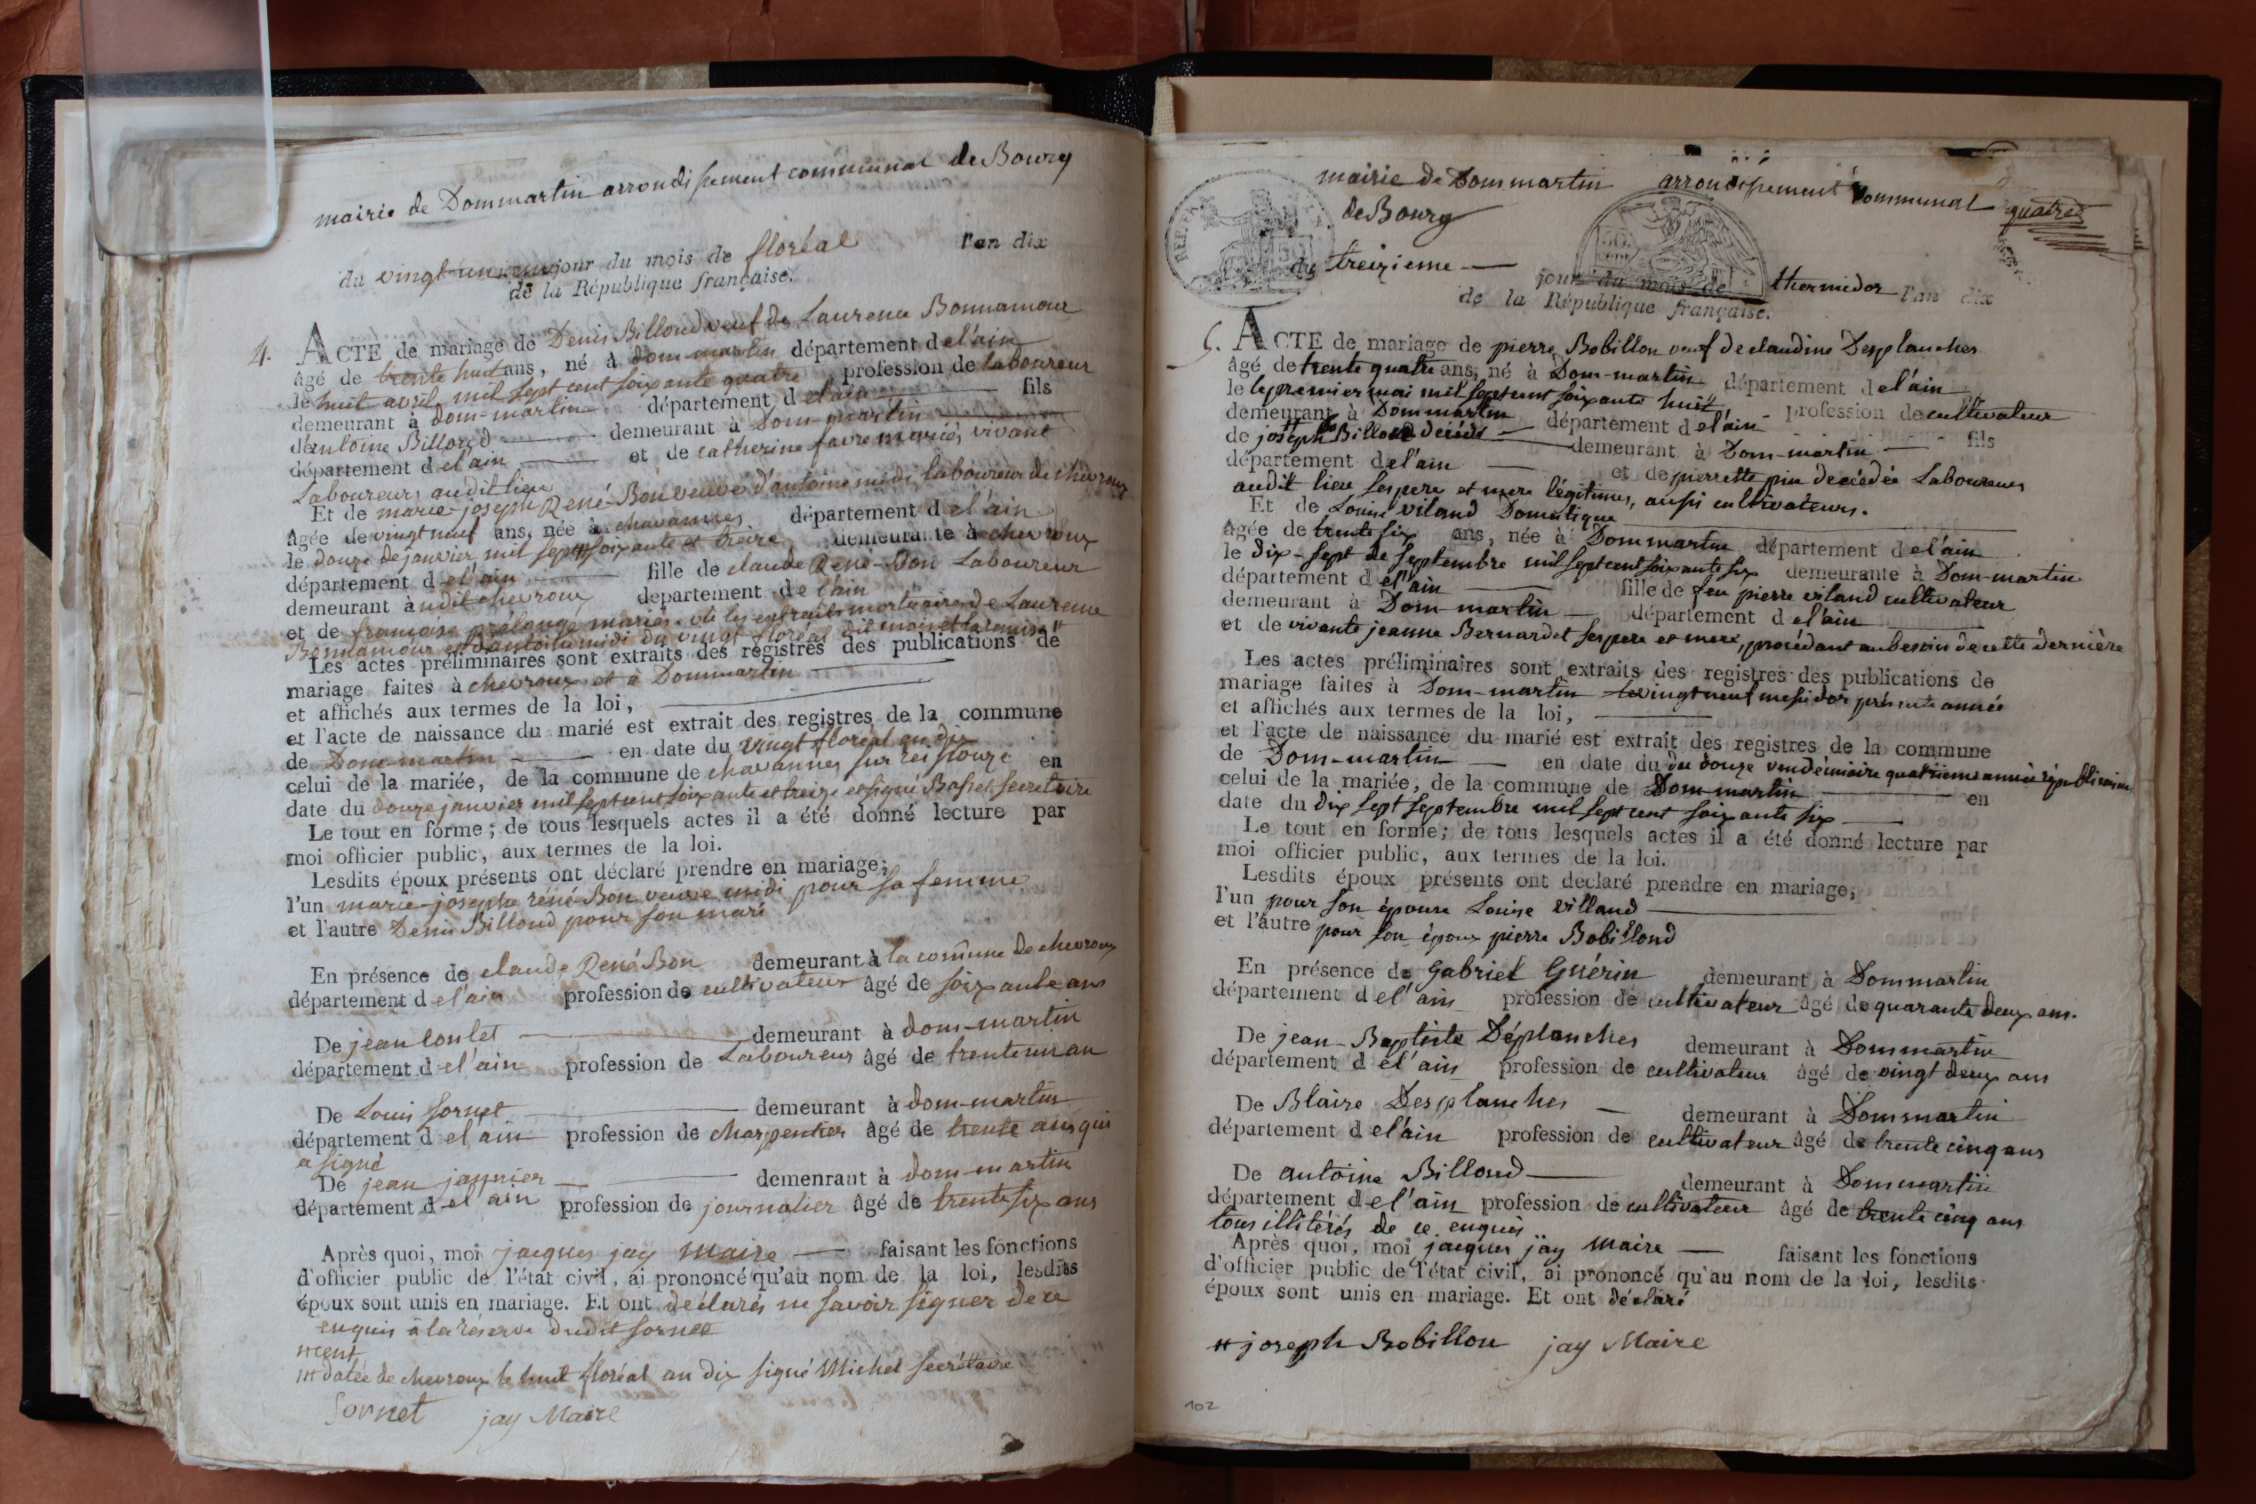 mairie de Dommartin arrondissement communal de Bourg
du vingt-unieme jour du mois de floréal l'an dix
de la République française.
4. ACTE de mariage de Denis Billoud veuf de Laurence Bonnamour
âgé de trente huit ans, né à dom-martin département de l'ain
le huit avril mil sept cent soixante quatre profession de laboureur
demeurant à dom-martin département de l'ain fils
d'antoine Billoud demeurant à Dom-martin
département de l'ain et de catherine favre mariés, vivant
Laboureurs audit lieu
Et de marie-joseph René-Bon veuve d'antoine midi, laboureur de chevroux
âgée de vingt neuf ans, née à chavannes département de l'ain
le douze de janvier mil sept # soixante et treize demeurante à chevroux
département de l'ain fille de claude René-Bon Laboureur
demeurant audit chevroux département de l'ain
et de françoise prelonge mariés. vu les extraits mortuaires de Laurence
Bonnamour et d'antoine midi du vingt floréal dit mois et la remise #
Les actes préliminaires sont extraits des registres des publications de
mariage faites à chevroux et à Dommartin
et affichés aux termes de la loi,
et l'acte de naissance du marié est extrait des registres de la commune
de Dom-martin en date du vingt floréal an dix
celui de la mariée, de la commune de chavannes sur reissouze en
date du douze janvier mil sept cent soixante et treize et signé secretaire
Le tout en forme; de tous lesquels actes il a été donné lecture par
moi officier public, aux termes de la loi.
Lesdits époux présents ont déclaré prendre en mariage;
l'un marie-josephe réné-Bon veuve midi pour sa femme
et l'autre Denis Billoud pour son mari
En présence de claude René Bon demeurant à la comune de chevroux
département de l'ain profession de cultivateur âgé de soixante ans
De jean loulet demeurant à dom-martin
département de l'ain profession de Laboureur âgé de trente un an
De Louis sornet demeurant à dom-martin
département de l'ain profession de charpentier âgé de trente ans qui
a signé
De jean demeurant à dom-martin
département de l'ain profession de journalier âgé de trente six ans
Après quoi, moi jacques jay maire faisant les fonctions
d'officier public de l'état civil, ai prononcé qu'au nom de la loi, lesdits
époux sont unis en mariage. Et ont déclarés ne savoir signer de ce
enquis à la réserve dudit sornet
# cent
## datée de chevroux le huit floréal an dix signé Michel secrétaire
Sornet jay Maire
mairie de Dommartin arrondissement communal quatre
de Bourg
du treizieme jour du mois de thermidor l'an dix
de la République française.
5. ACTE de mariage de pierre Bobillon veuf de claudine Desplanches
âgé de trente quatre ans, né à Dom-martin département de l'ain
le le premier mai mil sept cent soixante huit profession de cultivateur
demeurant à Dommartin département de l'ain fils
de joseph Billoud décédé demeurant à Dom-martin
département de l'ain et de pierrette pin decédée Laboureurs
audit lieu ses pere et mere légitimes, aussi cultivateurs.
Et de Louise viland Domestique
âgée de trente six ans, née à Dommartin département de l'ain
le dix-sept de septembre mil sept cent soixante six demeurante à Dom-martin
département de l'ain fille de feu pierre viland cultivateur
demeurant à Dom-martin département de l'ain
et de vivante jeanne Bernardet ses pere et mere, procédant au besoin de cette dernière
Les actes préliminaires sont extraits des registres des publications de
mariage faites à Dom-martin le vingt neuf messidor présente année
et affichés aux termes de la loi,
et l'acte de naissance du marié est extrait des registres de la commune
de Dom-martin en date du du douze vendémiaire quatrieme année républicaine
celui de la mariée, de la commune de Dom-martin en
date du dix sept septembre mil sept cent soixante six
Le tout en forme; de tous lesquels actes il a été donné lecture par
moi officier public, aux termes de la loi.
Lesdits époux présents ont declaré prendre en mariage,
l'un pour son épouse Louise villand
et l'autre pour son époux pierre Bobillond
En présence de Gabriel Guérin demeurant à Dommartin
département de l'ain profession de cultivateur âgé de quarante deux ans.
De jean-Baptiste Déplanches demeurant à Dommartin
département de l'ain profession de cultivateur âgé de vingt deux ans
De Blaise Desplanches demeurant à Dommartin
département de l'ain profession de cultivateur âgé de trente cinq ans
De antoine Billoud demeurant à Dommartin
département de l'ain profession de cultivateur âgé de trente cinq ans
tous illitérés de ce enquis
Après quoi, moi jacques jäy maire faisant les fonctions
d'officier public de l'état civil, ai prononcé qu'au nom de la loi, lesdits
époux sont unis en mariage. Et ont déclaré
# joseph Bobillon jay Maire
102